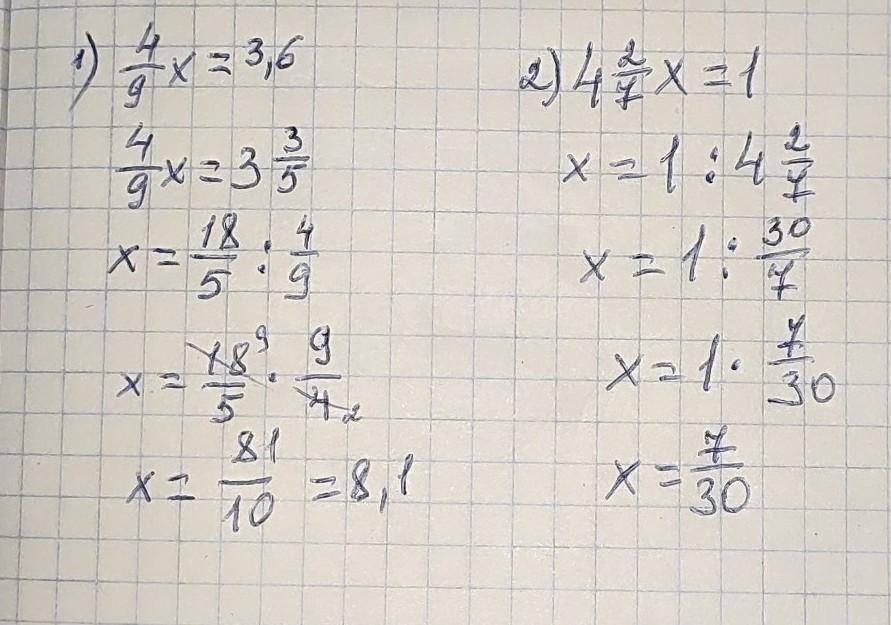 1) 4/9 x = 3,6
4/9 x = 3 3/5
x = 18/5 : 4/9
x = 18 9/5 · 9/4 2
x = 81/10 = 8,1
2) 4 2/7 x = 1
x = 1 : 4 2/7
x = 1 : 30/7
x = 1 · 7/30
x = 7/30